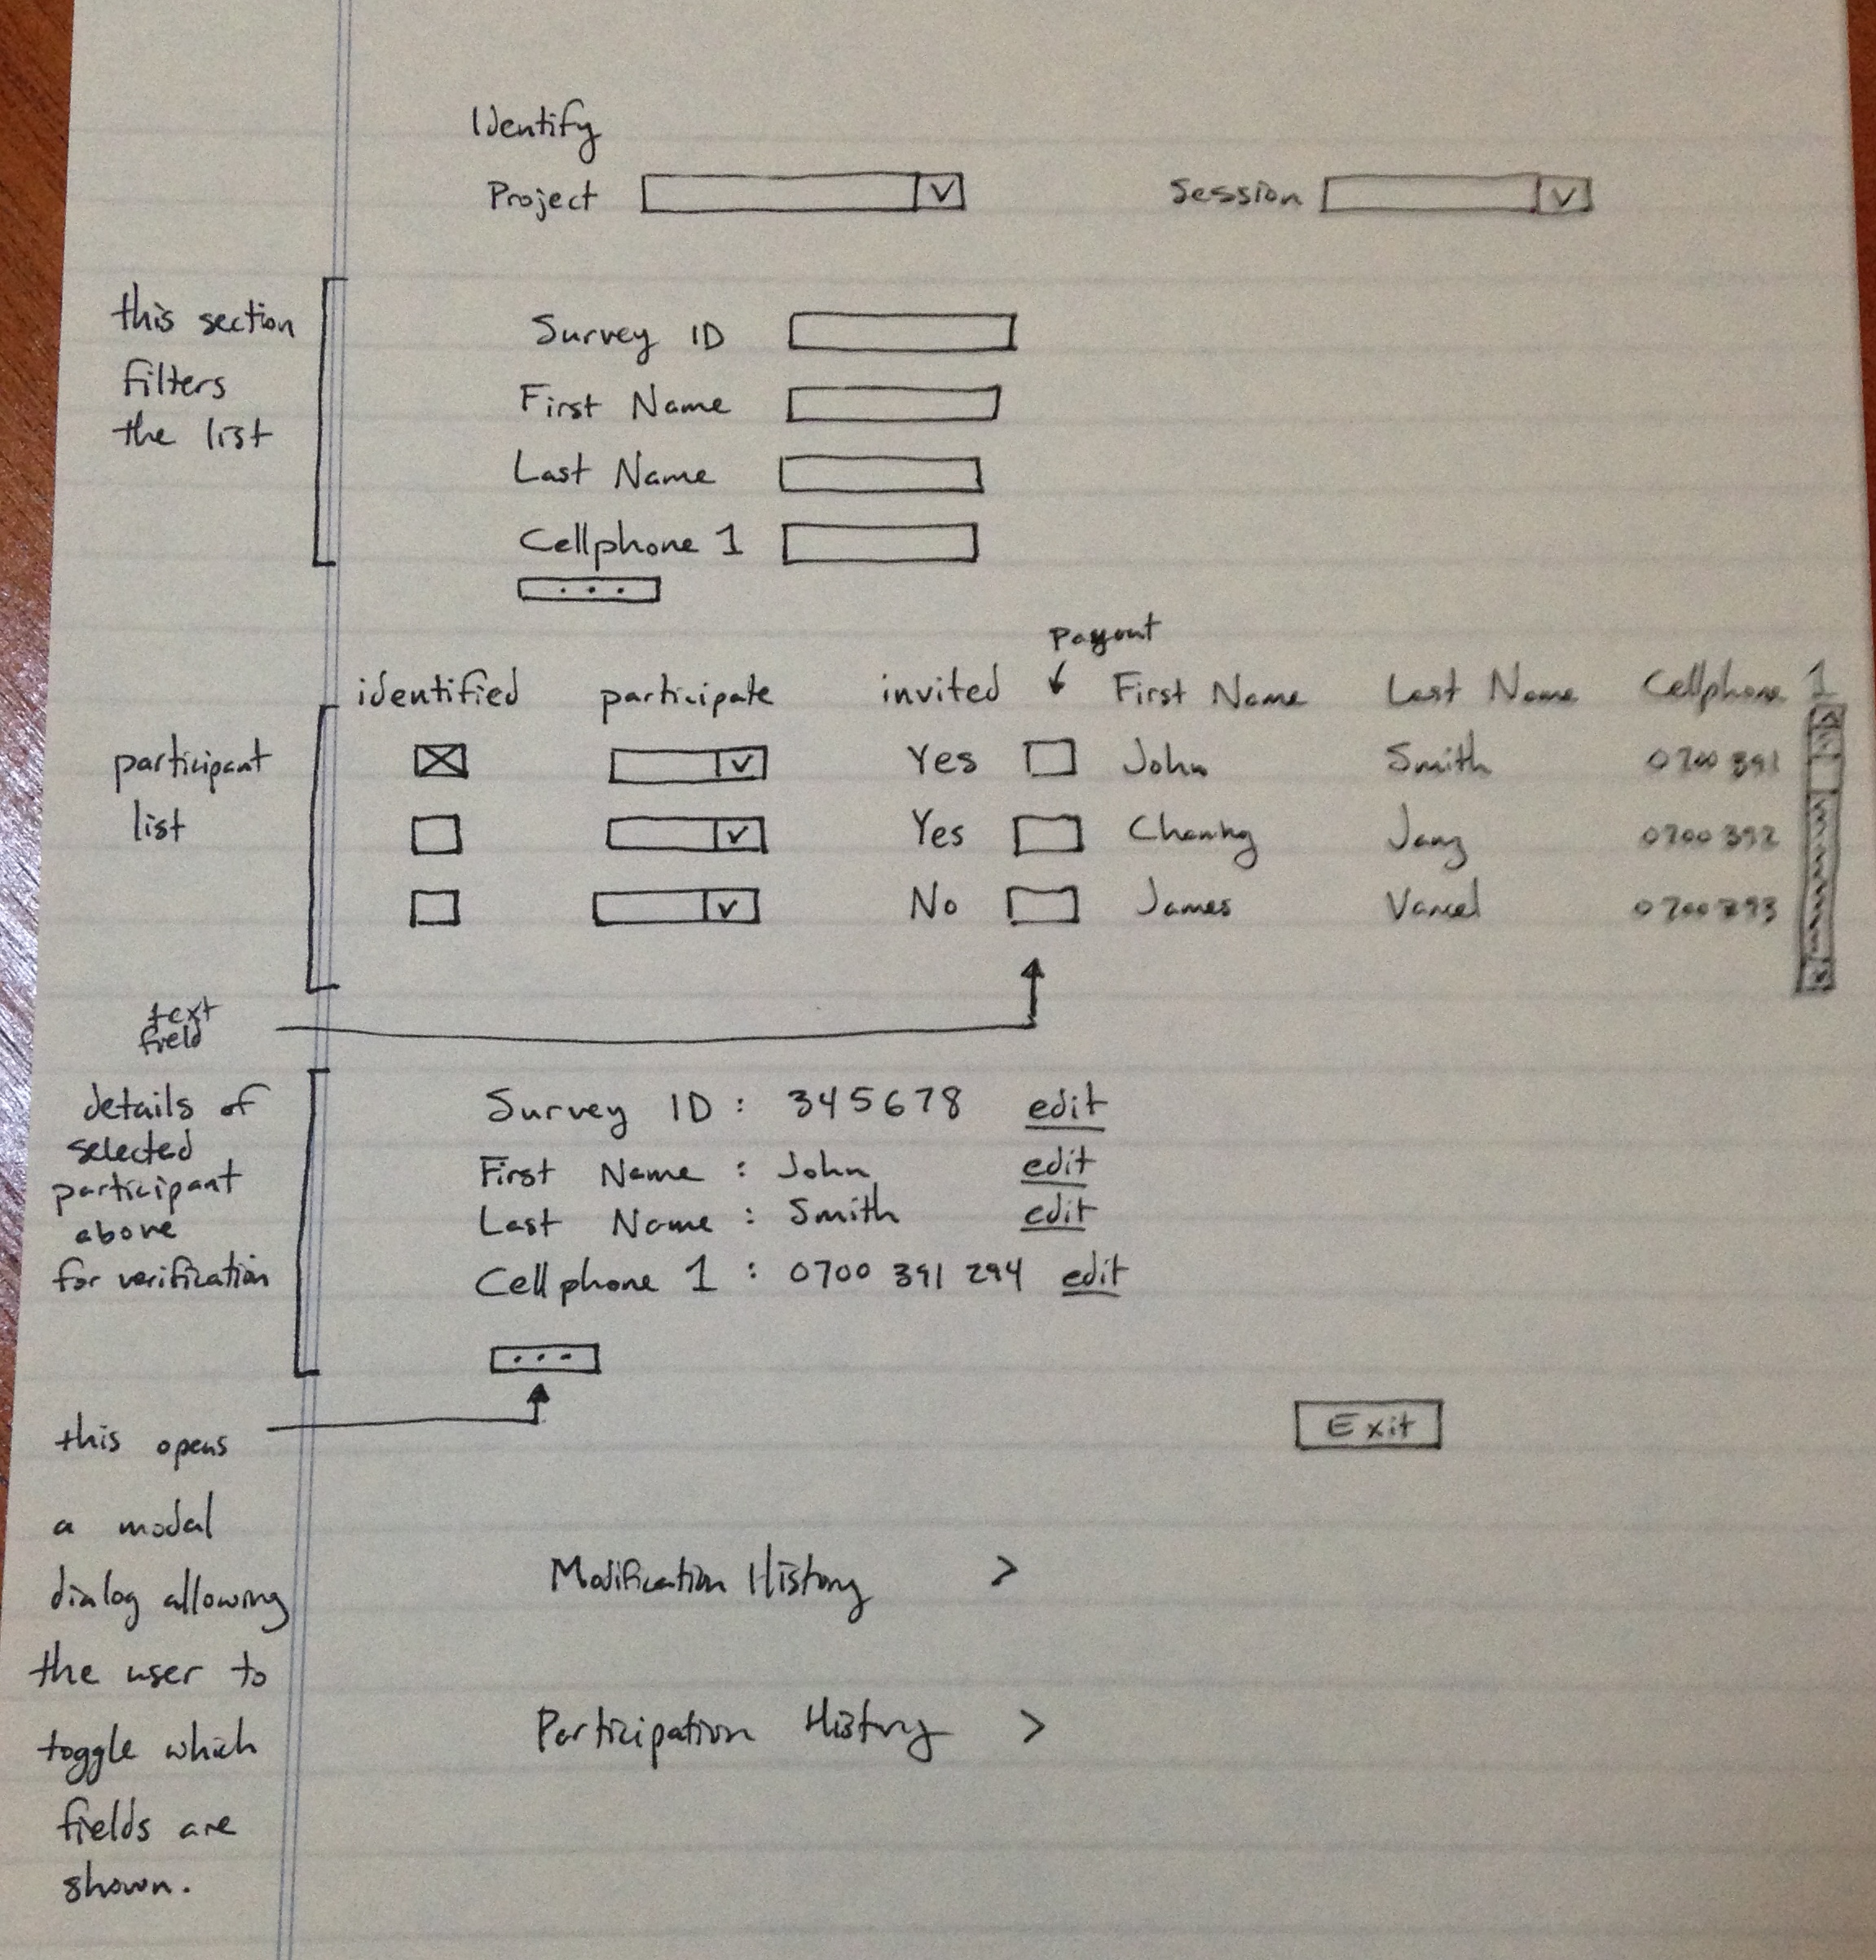 Identify
Project V Session V
this section
filters
the list
Survey ID
First Name
Last Name
Cellphone 1
...
payout
identified participate invited First Name Last Name Cellphone 1
participant
list
X V Yes John Smith 0700 391
V Yes 0700 392
V No James
text
field
details of
selected
participant
above
for verification
Survey ID : 345678 edit
First Name : John edit
Last Name : Smith edit
Cellphone 1 : 0700 391 294 edit
...
this opens
a modal
dialog allowing
the user to
toggle which
fields are
shown.
Exit
Modification History >
Participation History >